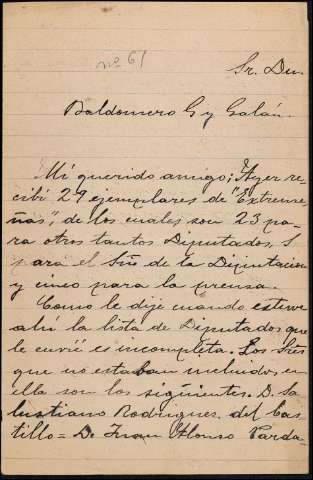 nº 61
Sr. Dn.
Baldomero G y Galán.
Mi querido amigo; Ayer re-
cibí 29 ejemplares de "Extreme-
ñas", de los cuales son 23 pa-
ra otros tantos Diputados,
para el Sño de la Diputacion
y cinco para la prensa.
Como le dije cuando estuve
ahí la lista de Diputados que
le envié es incompleta. Los Sres
que no estaban incluidos en
ella son los siguientes. D. Sa-
lustiano Rodriguez del Cas-
tillo = D. Juan Alonso Parda-